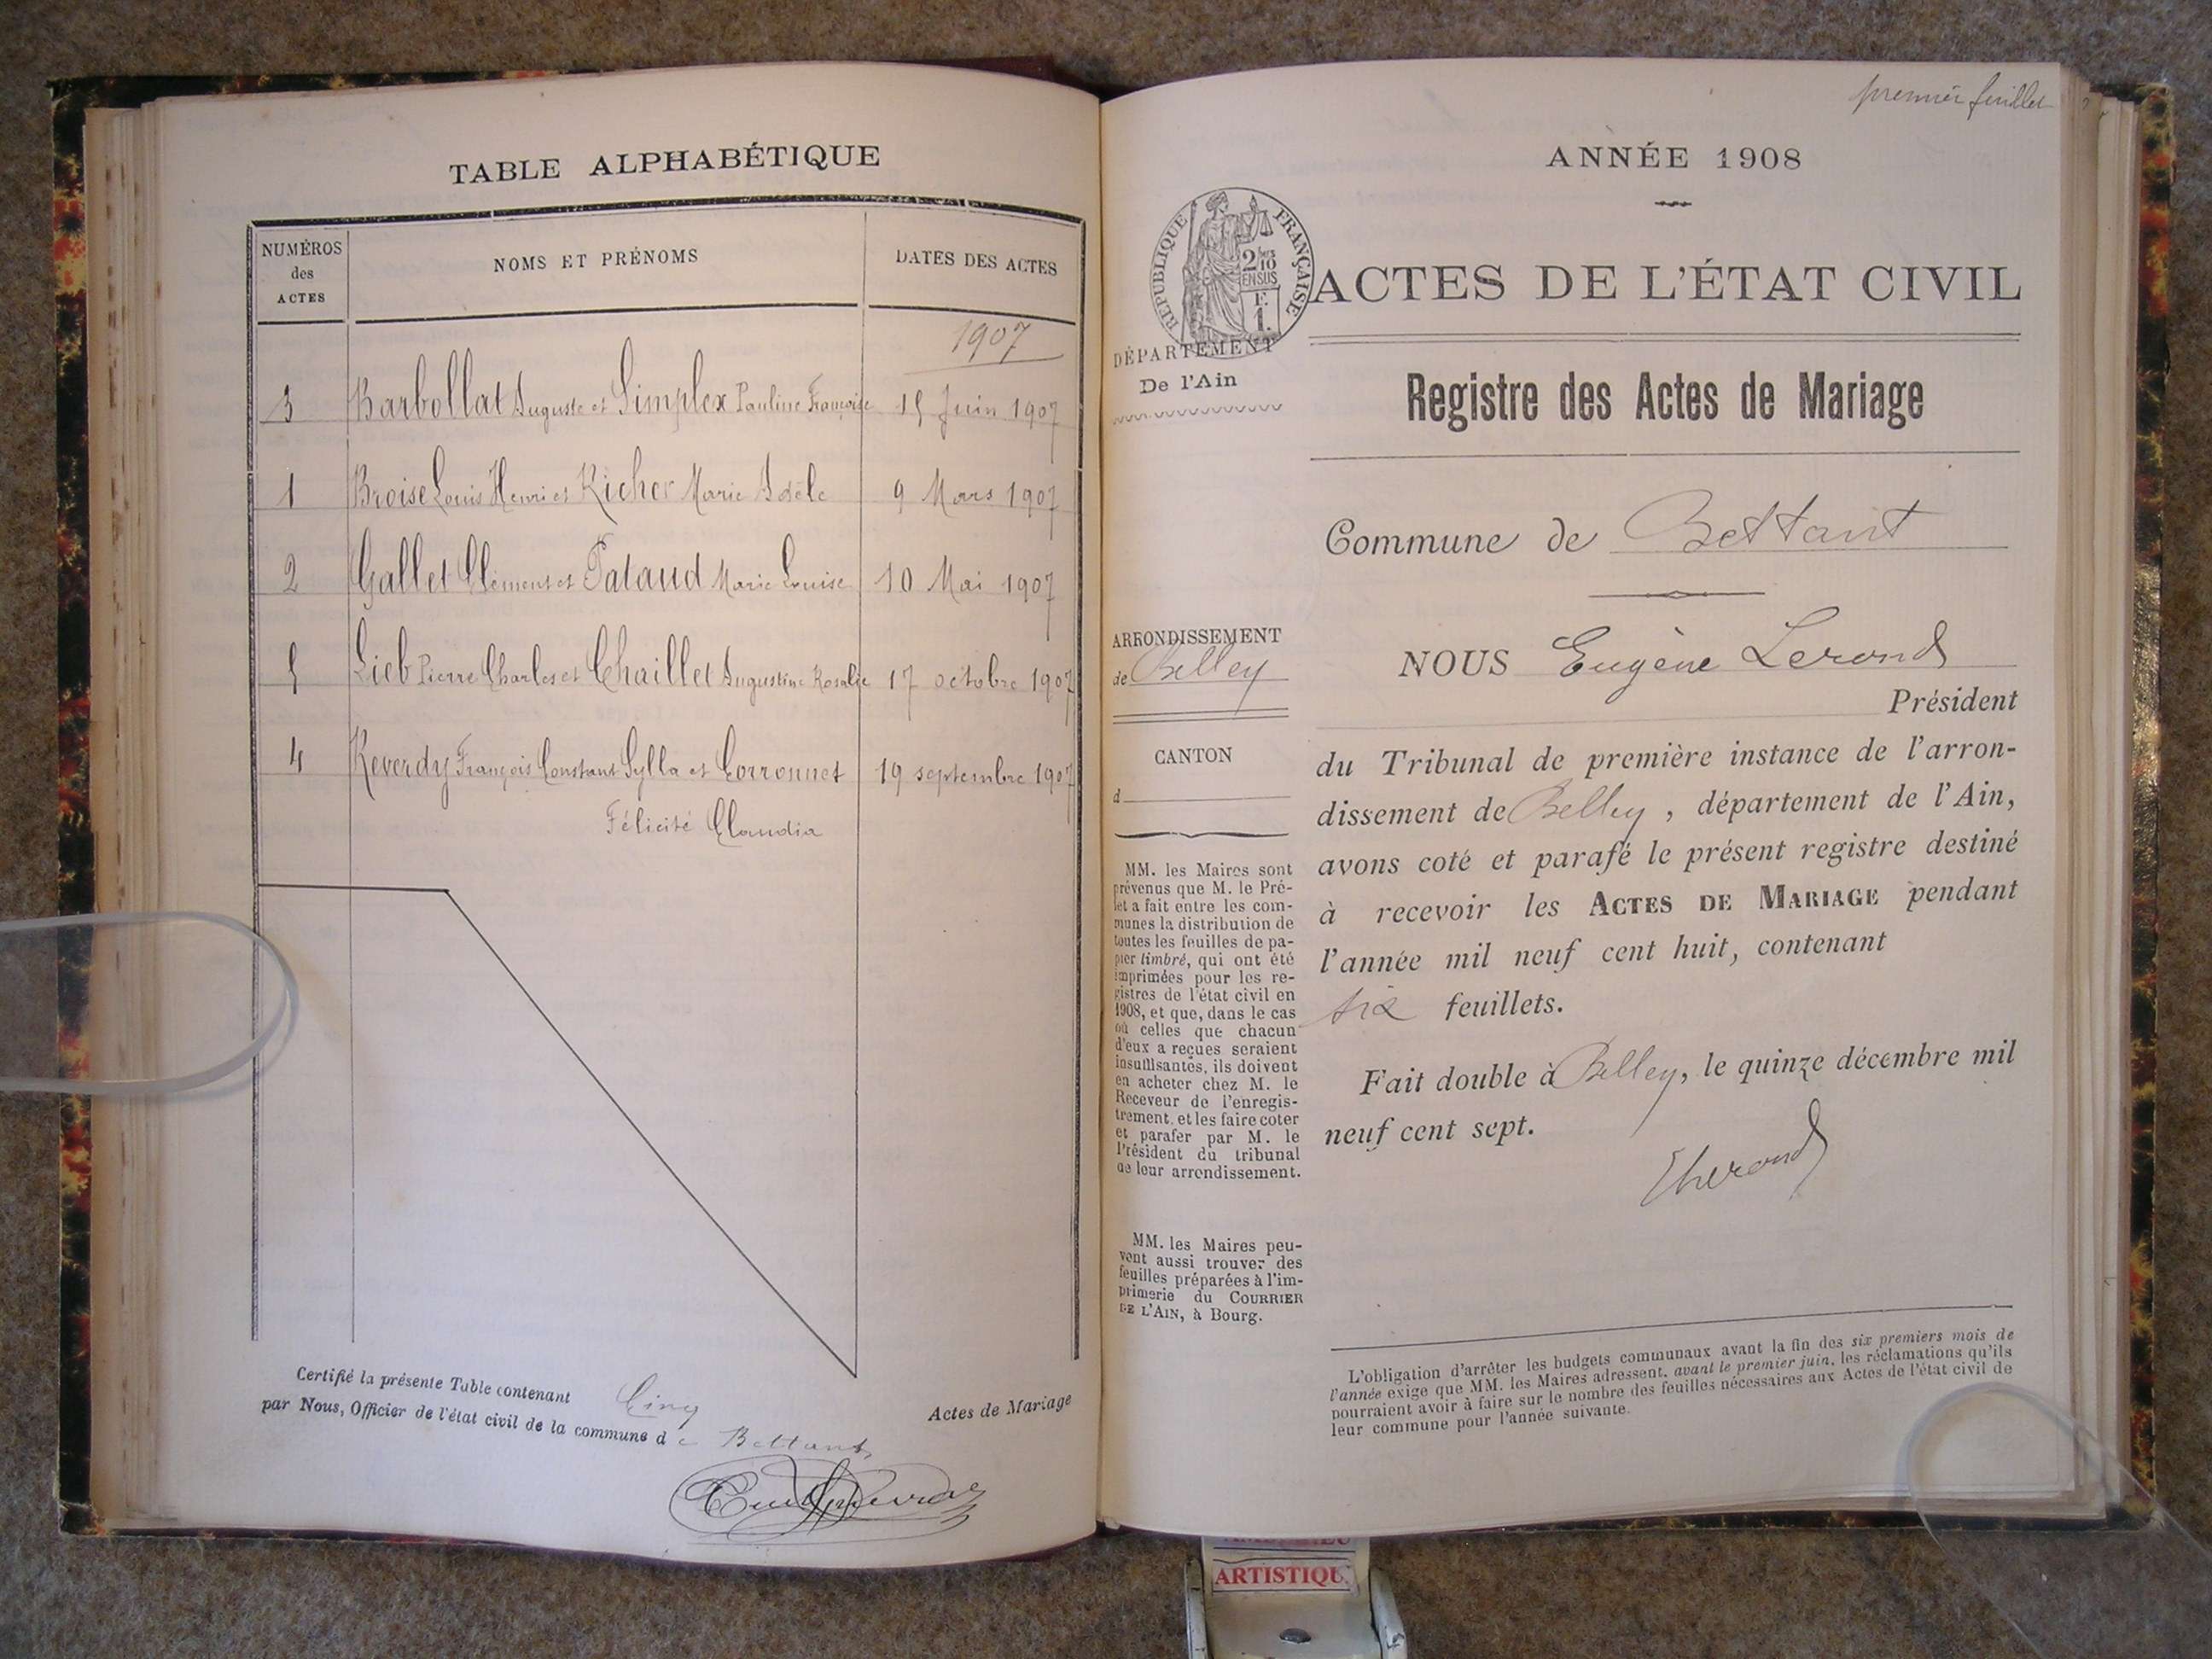 TABLE ALPHABÉTIQUE
NUMÉROS
des
ACTES
NOMS ET PRÉNOMS
DATES DES ACTES
1907
3 Barbollat Auguste et Simplex Pauline Françoise 15 Juin 1907
1 Broise Louis Henri et Richer Marie Adèle 9 Mars 1907
2 Gallet Clément et Pataud Marie Louise 10 Mai 1907
5 Lieb Pierre Charles et Chaillet Augustine Rosalie 17 octobre 1907
4 Reverdy François Constant Sylla et Corronnet 19 septembre 1907
Félicité Claudia
Certifié la présente Table contenant Cinq Actes de Mariage
par Nous, Officier de l'état civil de la commune de Bettant
premier feuillet
ANNÉE 1908
RÉPUBLIQUE FRANÇAISE
2/10
EN SUS
F.
1.
ACTES DE L'ÉTAT CIVIL
DÉPARTEMENT
De l'Ain
Registre des Actes de Mariage
Commune de Bettant
ARRONDISSEMENT
de Belley
CANTON
d
MM. les Maires sont
prévenus que M. le Pré-
fet a fait entre les com-
munes la distribution de
toutes les feuilles de pa-
pier timbré, qui ont été
imprimées pour les re-
gistres de l'état civil en
1908, et que, dans le cas
où celles que chacun
d'eux a reçues seraient
insuffisantes, ils doivent
en acheter chez M. le
Receveur de l'enregis-
trement, et les faire coter
et parafer par M. le
Président du tribunal
de leur arrondissement.
MM. les Maires peu-
vent aussi trouver des
feuilles préparées à l'im-
primerie du COURRIER
DE L'AIN, à Bourg.
NOUS Eugène Lerond
Président
du Tribunal de première instance de l'arron-
dissement de Belley, département de l'Ain,
avons coté et parafé le présent registre destiné
à recevoir les ACTES DE MARIAGE pendant
l'année mil neuf cent huit, contenant
six feuillets.
Fait double à Belley, le quinze décembre mil
neuf cent sept.
L'obligation d'arrêter les budgets communaux avant la fin des six premiers mois de
l'année exige que MM. les Maires adressent, avant le premier juin, les réclamations qu'ils
pourraient avoir à faire sur le nombre des feuilles nécessaires aux Actes de l'état civil de
leur commune pour l'année suivante.
ARTISTIQU